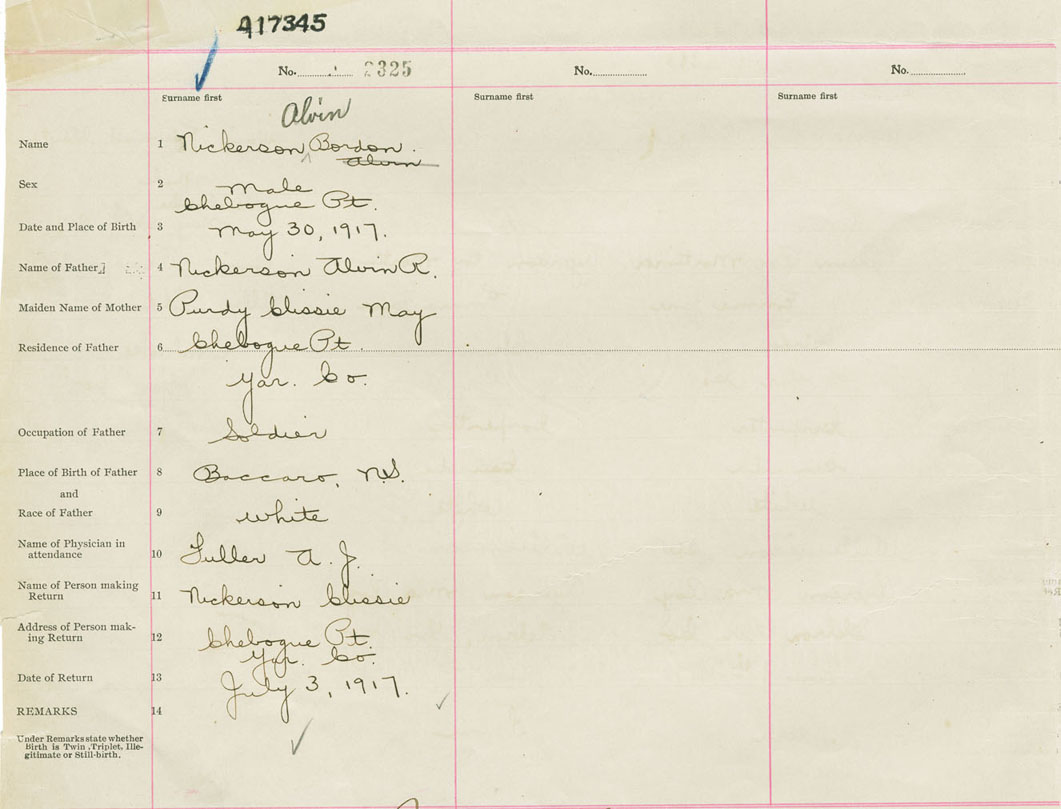 417345
No. 2325 No. No.
Surname first Surname first Surname first
Alvin
Name 1 Nickerson, Bordon.
Alvin
Sex 2 Male
Chebogue Pt.
Date and Place of Birth 3 May 30, 1917.
Name of Father 4 Nickerson Alvin R.
Maiden Name of Mother 5 Purdy Clissie May
Residence of Father 6 Chebogue Pt.
Yar. Co.
Occupation of Father 7 Soldier
Place of Birth of Father 8 Baccaro, N.S.
and
Race of Father 9 White
Name of Physician in
attendance 10 Fuller A. J.
Name of Person making
Return 11 Nickerson Clissie
Address of Person mak-
ing Return 12 Chebogue Pt.
Yar. Co.
Date of Return 13 July 3, 1917.
REMARKS 14
Under Remarks state whether
Birth is Twin, Triplet, Ille-
gitimate or Still-birth.